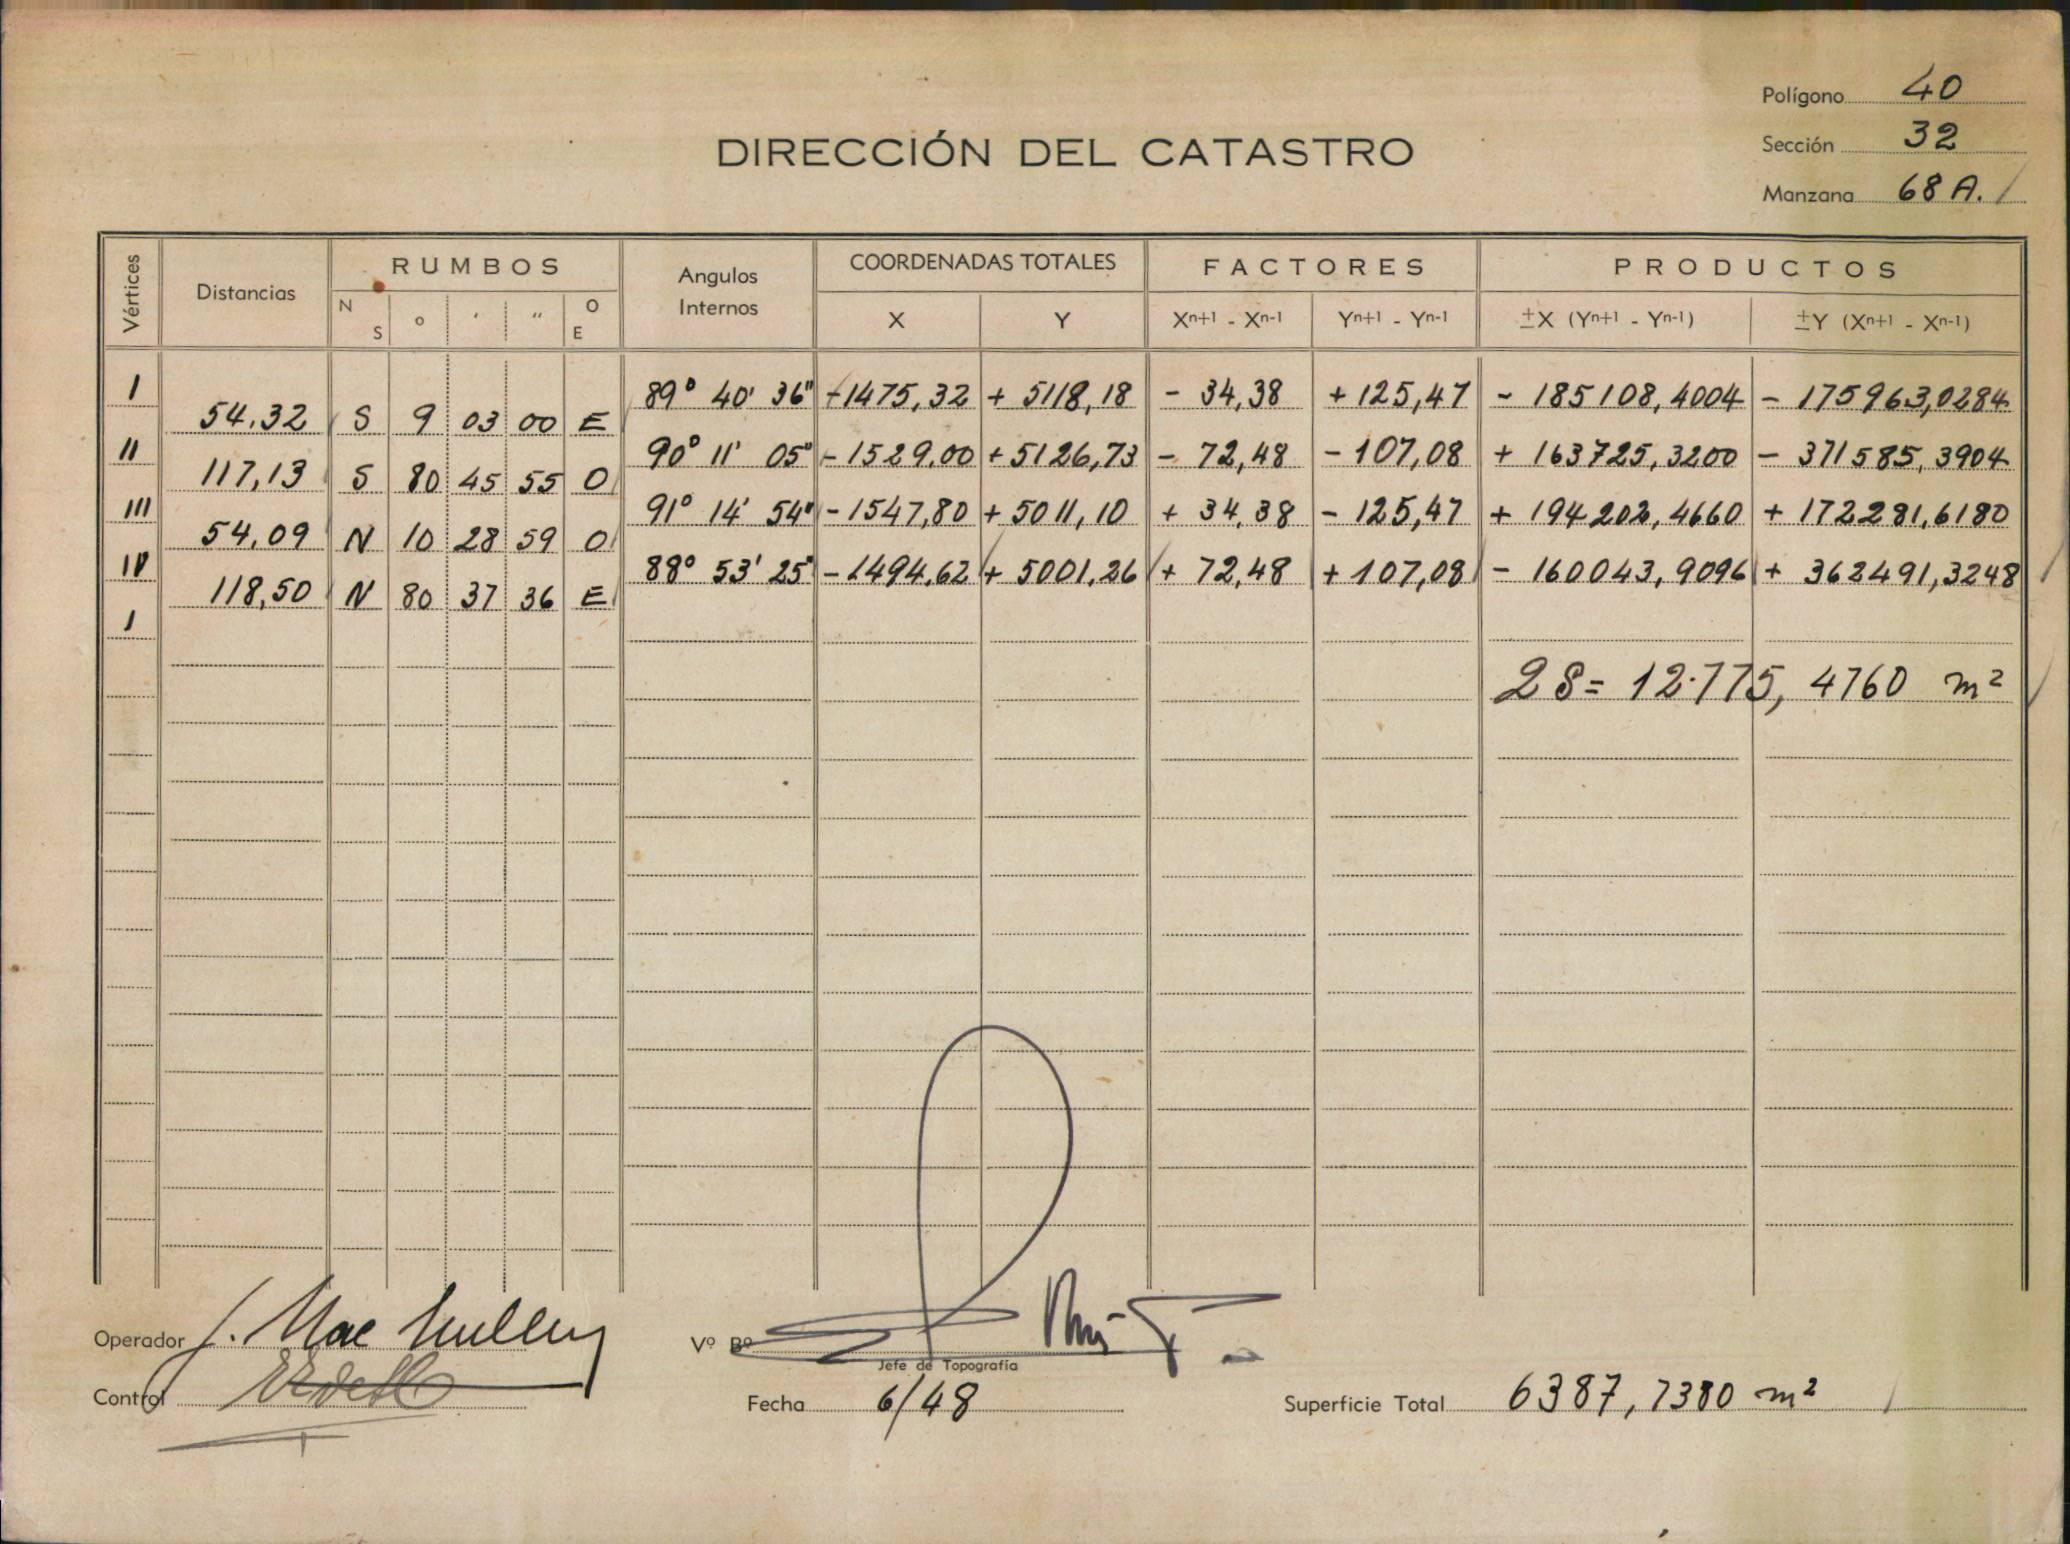 Polígono 40
DIRECCIÓN DEL CATASTRO
Sección 32
Manzana 68 A.
Vértices Distancias RUMBOS Angulos Internos COORDENADAS TOTALES FACTORES PRODUCTOS
N S o ' " O E X Y Xn+1 - Xn-1 Yn+1 - Yn-1 ±X (Yn+1 - Yn-1) ±Y (Xn+1 - Xn-1)
I 89° 40' 36" -1475,32 + 5118,18 - 34,38 + 125,47 - 185108,4004 - 175963,0284
54,32 S 9 03 00 E
II 90° 11' 05" - 1529,00 + 5126,73 - 72,48 - 107,08 + 163725,3200 - 371585,3904
117,13 S 80 45 55 O
III 91° 14' 54" - 1547,80 + 5011,10 + 34,38 - 125,47 + 194202,4660 + 172281,6180
54,09 N 10 28 59 O
IV 88° 53' 25" - 1494,62 + 5001,26 + 72,48 + 107,08 - 160043,9096 + 362491,3248
118,50 N 80 37 36 E
I
2S = 12.775,4760 m²
Operador J. Mac
Vº Bº
Jefe de Topografía
Control
Fecha 6/48
Superficie Total 6387,7380 m²